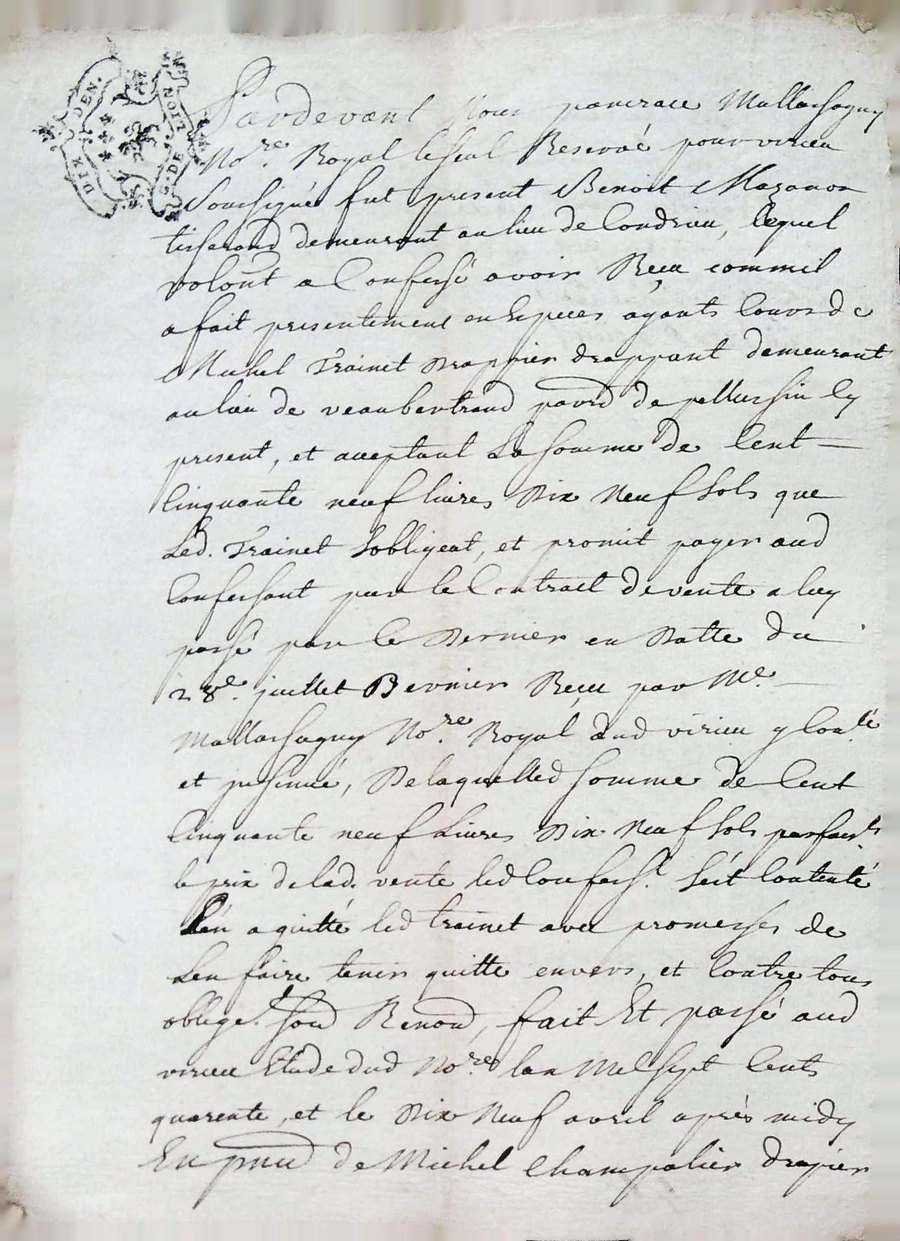 DIX DEN.
G. DE LION
Pardevant Nous pancrace Mallassagny
No.re Royal le seul Reservé pour virieu
Soussigné fut present Benoit Mazanon
tisserand demeurant au lieu de Condrieu, lequel
volont a Confessé avoir Reçu comm'il
a fait presentement en Especes ayants Cours de
Michel Trainet Drappier drappant demeurant
au lieu de veaubertrand parrd de pellussin Cy
present, et aceptant La somme de Cent
Cinquante neuf livres Dix Neuf Sols que
Led. Trainet s'obligeat, et promit payer aud
Confessant par le Contract de vente a luy
passé par le Dernier en Datte du
28e. juillet Dernier Reçu par Me.
Mallassagny No.re Royal aud virieu y Con.lé
et jnsinué, De laquelled somme de Cent
Cinquante neuf Livres Dix Neuf Sols parfais.t
le prix de lad. vente led Confess.t s'ést Contenté
L'én a quitté led trainet avec promesses de
L'en faire tenir quitte envers, et Contre tous
oblige.t sond Renond, fait Et passé aud
virieu Etude dud No.re L'an Mil Sept Cents
quarente, et le Dix Neuf avril après midy
En pnce de Michel Champalier drapier